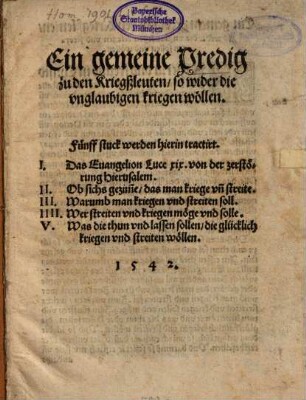 Hom. 1901
Bayerische
Staatsbibliothek
München
Ein gemeine Predig
zu den Kriegßleuten / so wider die
vnglaubigen kriegen wöllen.
Fünff stuck werden hierin tractirt.
I. Das Euangelion Luce xix. von der zerstö-
rung Hierusalem.
II. Ob sichs gezim̃e / das man kriege vñ streite.
III. Warumb man kriegen vnd streiten soll.
IIII. Wer streiten vnd kriegen möge vnd solle.
V. Was die thun vnd lassen sollen / die glücklich
kriegen vnd streiten wöllen.
1 5 4 2.